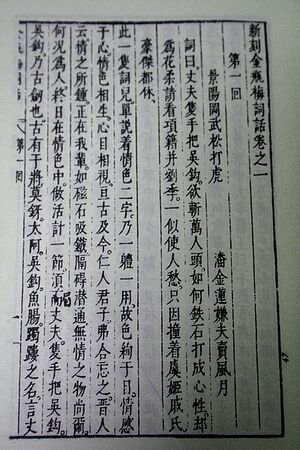 新刻金瓶梅詞話卷之一
第一回
景陽岡武松打虎　潘金蓮嫌夫賣風月
詞曰丈夫隻手把吳鈎欲斬萬人頭如何鐵石打成心性却
為花柔請看項籍并劉季一似使人愁只因撞着虞姬戚氏
豪傑都休
此一隻詞兒單說着情色二字乃一體一用故色絢于目情感
于心情色相生心目相視亘古及今仁人君子弗合忘之晉人
云情之所鍾正在我輩如磁石吸鐵隔碍潜通無情之物尚爾
何況為人終日在情色中做活計一節須而丈夫隻手把吳鈎
吳鈎乃古劍也古有干將莫鋣太阿吳鈎魚腸躅之名言丈
第一回